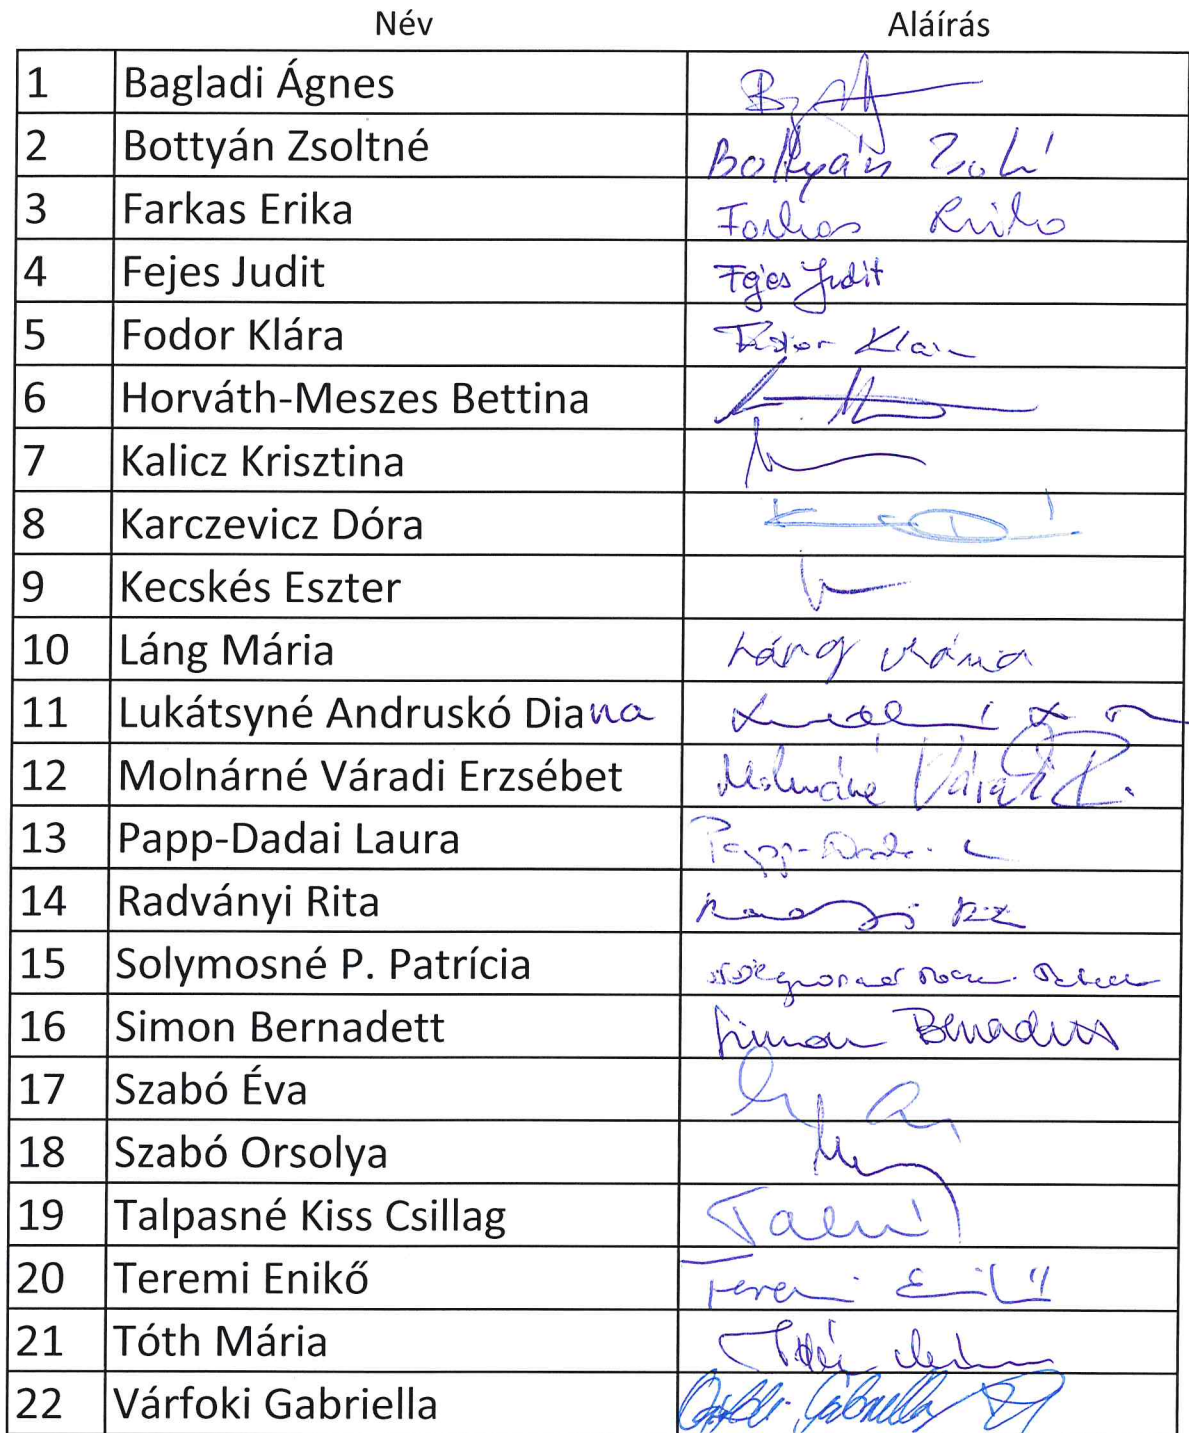 Név Aláírás
1 Bagladi Ágnes
2 Bottyán Zsoltné Bottyán Zsolt
3 Farkas Erika Farkas Erika
4 Fejes Judit Fejes Judit
5 Fodor Klára Fodor Klára
6 Horváth-Meszes Bettina
7 Kalicz Krisztina
8 Karczevicz Dóra
9 Kecskés Eszter
10 Láng Mária Láng Mária
11 Lukátsyné Andruskó Diana
12 Molnárné Váradi Erzsébet Molnárné Váradi
13 Papp-Dadai Laura Papp-Dadai L
14 Radványi Rita
15 Solymosné P. Patrícia
16 Simon Bernadett Simon Bernadett
17 Szabó Éva
18 Szabó Orsolya
19 Talpasné Kiss Csillag
20 Teremi Enikő Teremi Enikő
21 Tóth Mária
22 Várfoki Gabriella Gabriella